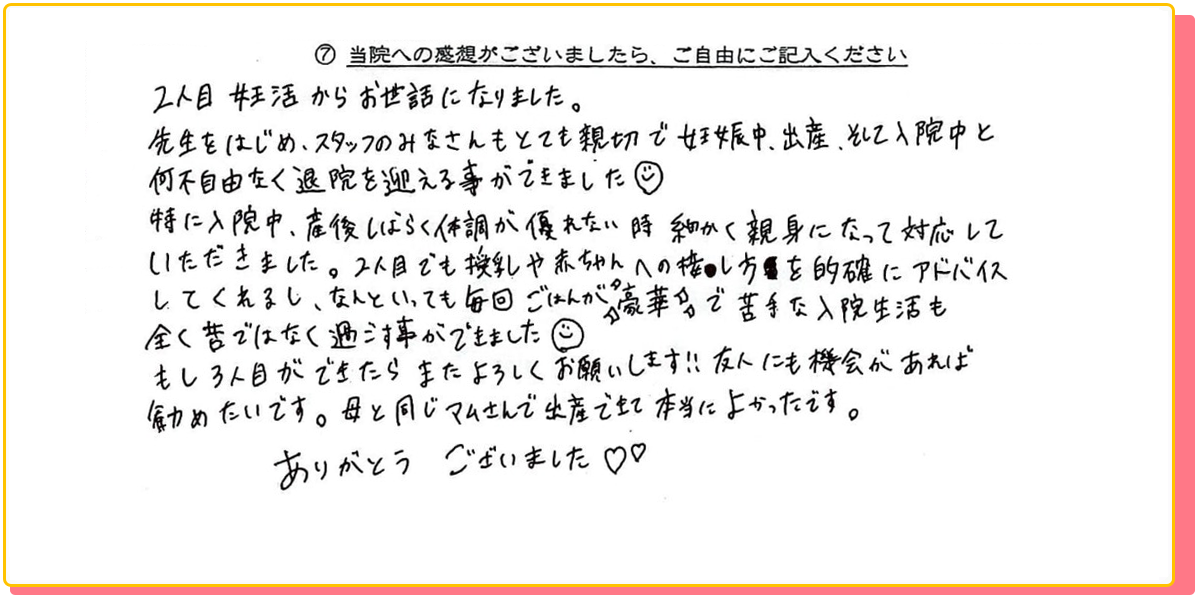 ⑦ 当院への感想がございましたら、ご自由にご記入ください
2人目 妊活からお世話になりました。
先生をはじめ、スタッフのみなさんもとても親切で 妊娠中、出産、そして入院中と
何不自由なく退院を迎える事ができました☺
特に入院中、産後しばらく体調が優れない時 細かく親身になって対応して
いただきました。2人目でも授乳や赤ちゃんへの接し方を的確にアドバイス
してくれるし、なんといっても毎回 ごはんが☆豪華☆で苦手な入院生活も
全く苦ではなく過ごす事ができました☺
もし3人目ができたら またよろしくお願いします!! 友人にも機会があれば
勧めたいです。母と同じマムさんで出産できて 本当によかったです。
ありがとう ございました♡♡